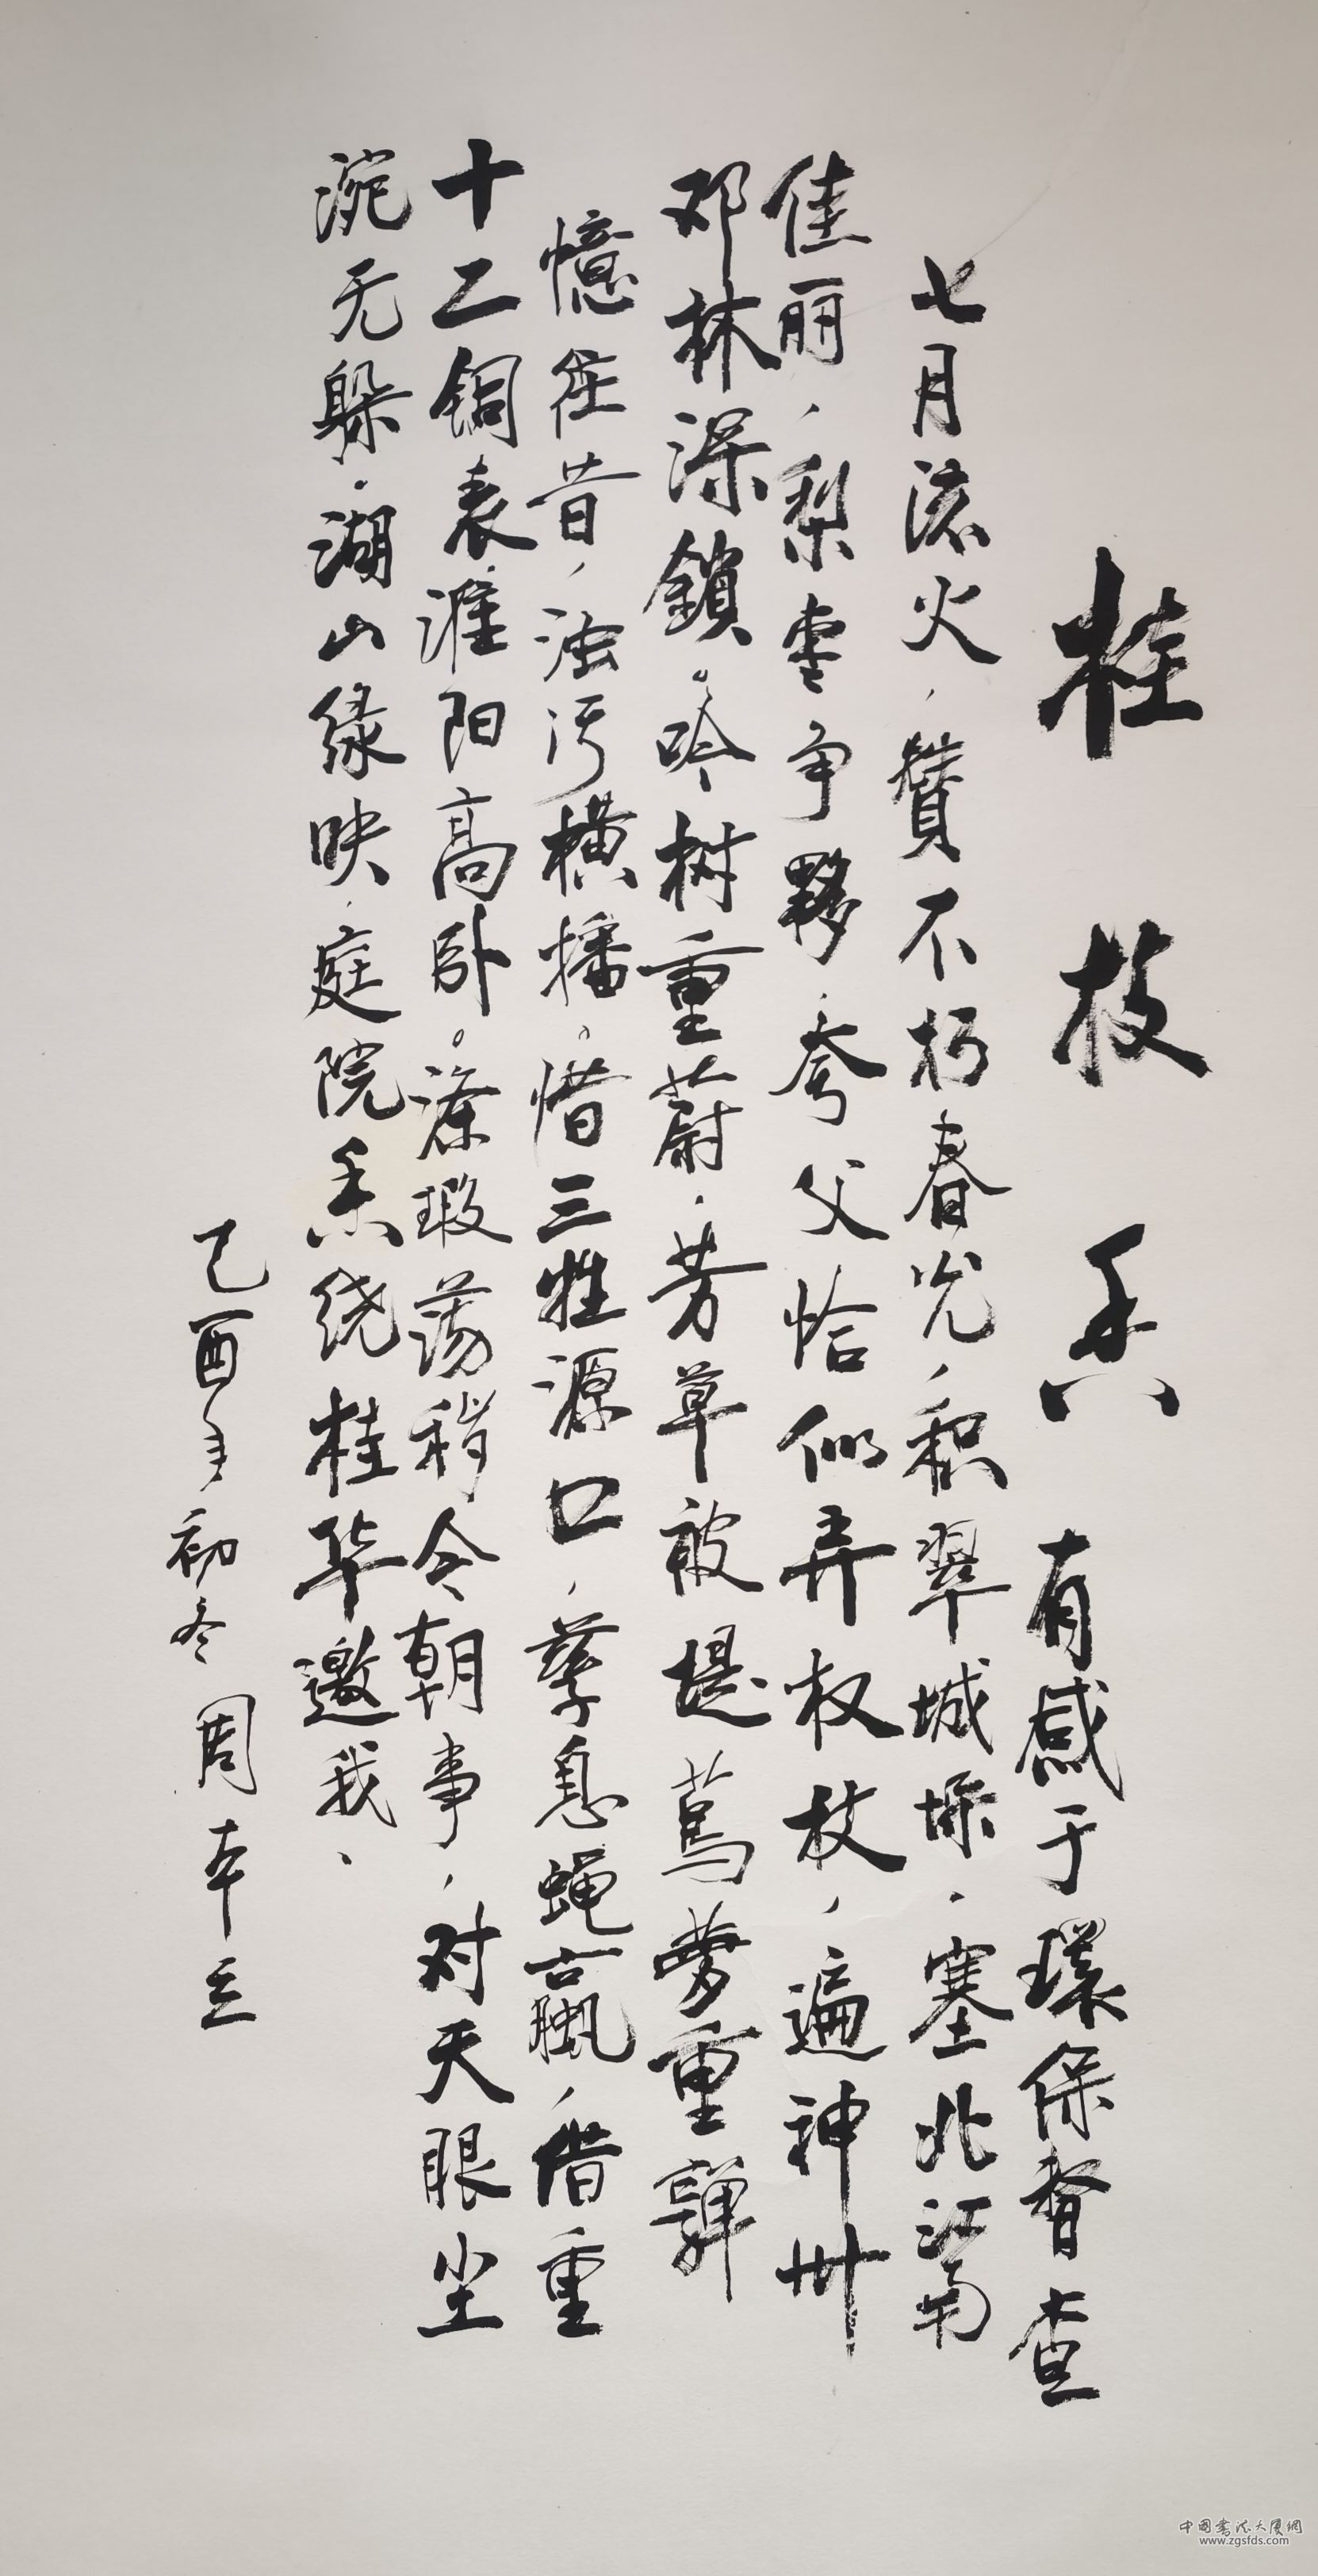 桂枝香 有感于環保督查
七月流火，贊不朽春光，积翠城垛，塞北江南
佳丽，梨枣争夥，夸父恰似弄权杖，遍神州
邓林深鎖。吟树重蔚，芳草被堤，蔦萝重嚲
憶往昔，浊污横播。惜三牲源口，孳息蝇蠃，借重
十二铜表淮阳高卧。涤瑕荡秽令朝事，对天眼坐
浣无躲。湖山绿映，庭院香绕桂华邀我、
乙酉年初冬 周本立
中国书法大厦網
www.zgsfds.com